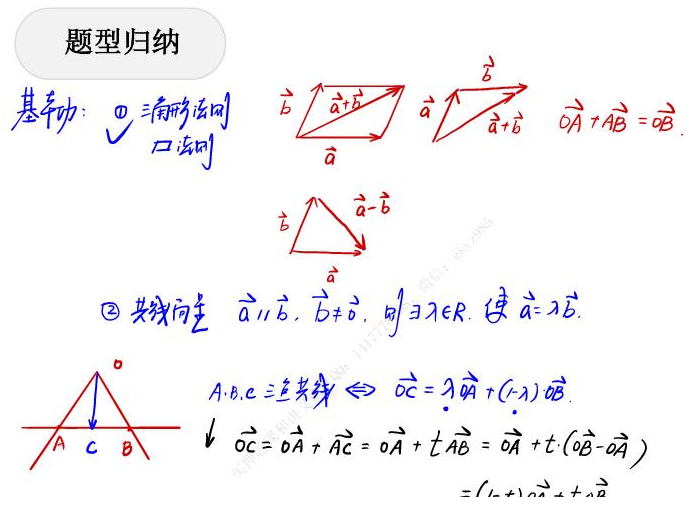 题型归纳
基本功: ① 三角形法则
口法则
b⃗ a⃗+b⃗ a⃗
a⃗ b⃗ a⃗+b⃗
OA⃗ + AB⃗ = OB⃗.
b⃗ a⃗-b⃗ a⃗
② 共线向量 a⃗ // b⃗, b⃗ ≠ 0⃗, 则 ∃λ∈R. 使 a⃗ = λb⃗.
O
A C B
A.B.C 三点共线 ⇔ OC⃗ = λOA⃗ + (1-λ)·OB⃗.
↓ OC⃗ = OA⃗ + AC⃗ = OA⃗ + tAB⃗ = OA⃗ + t·(OB⃗-OA⃗)
=(1-t)OA⃗ + tOB⃗